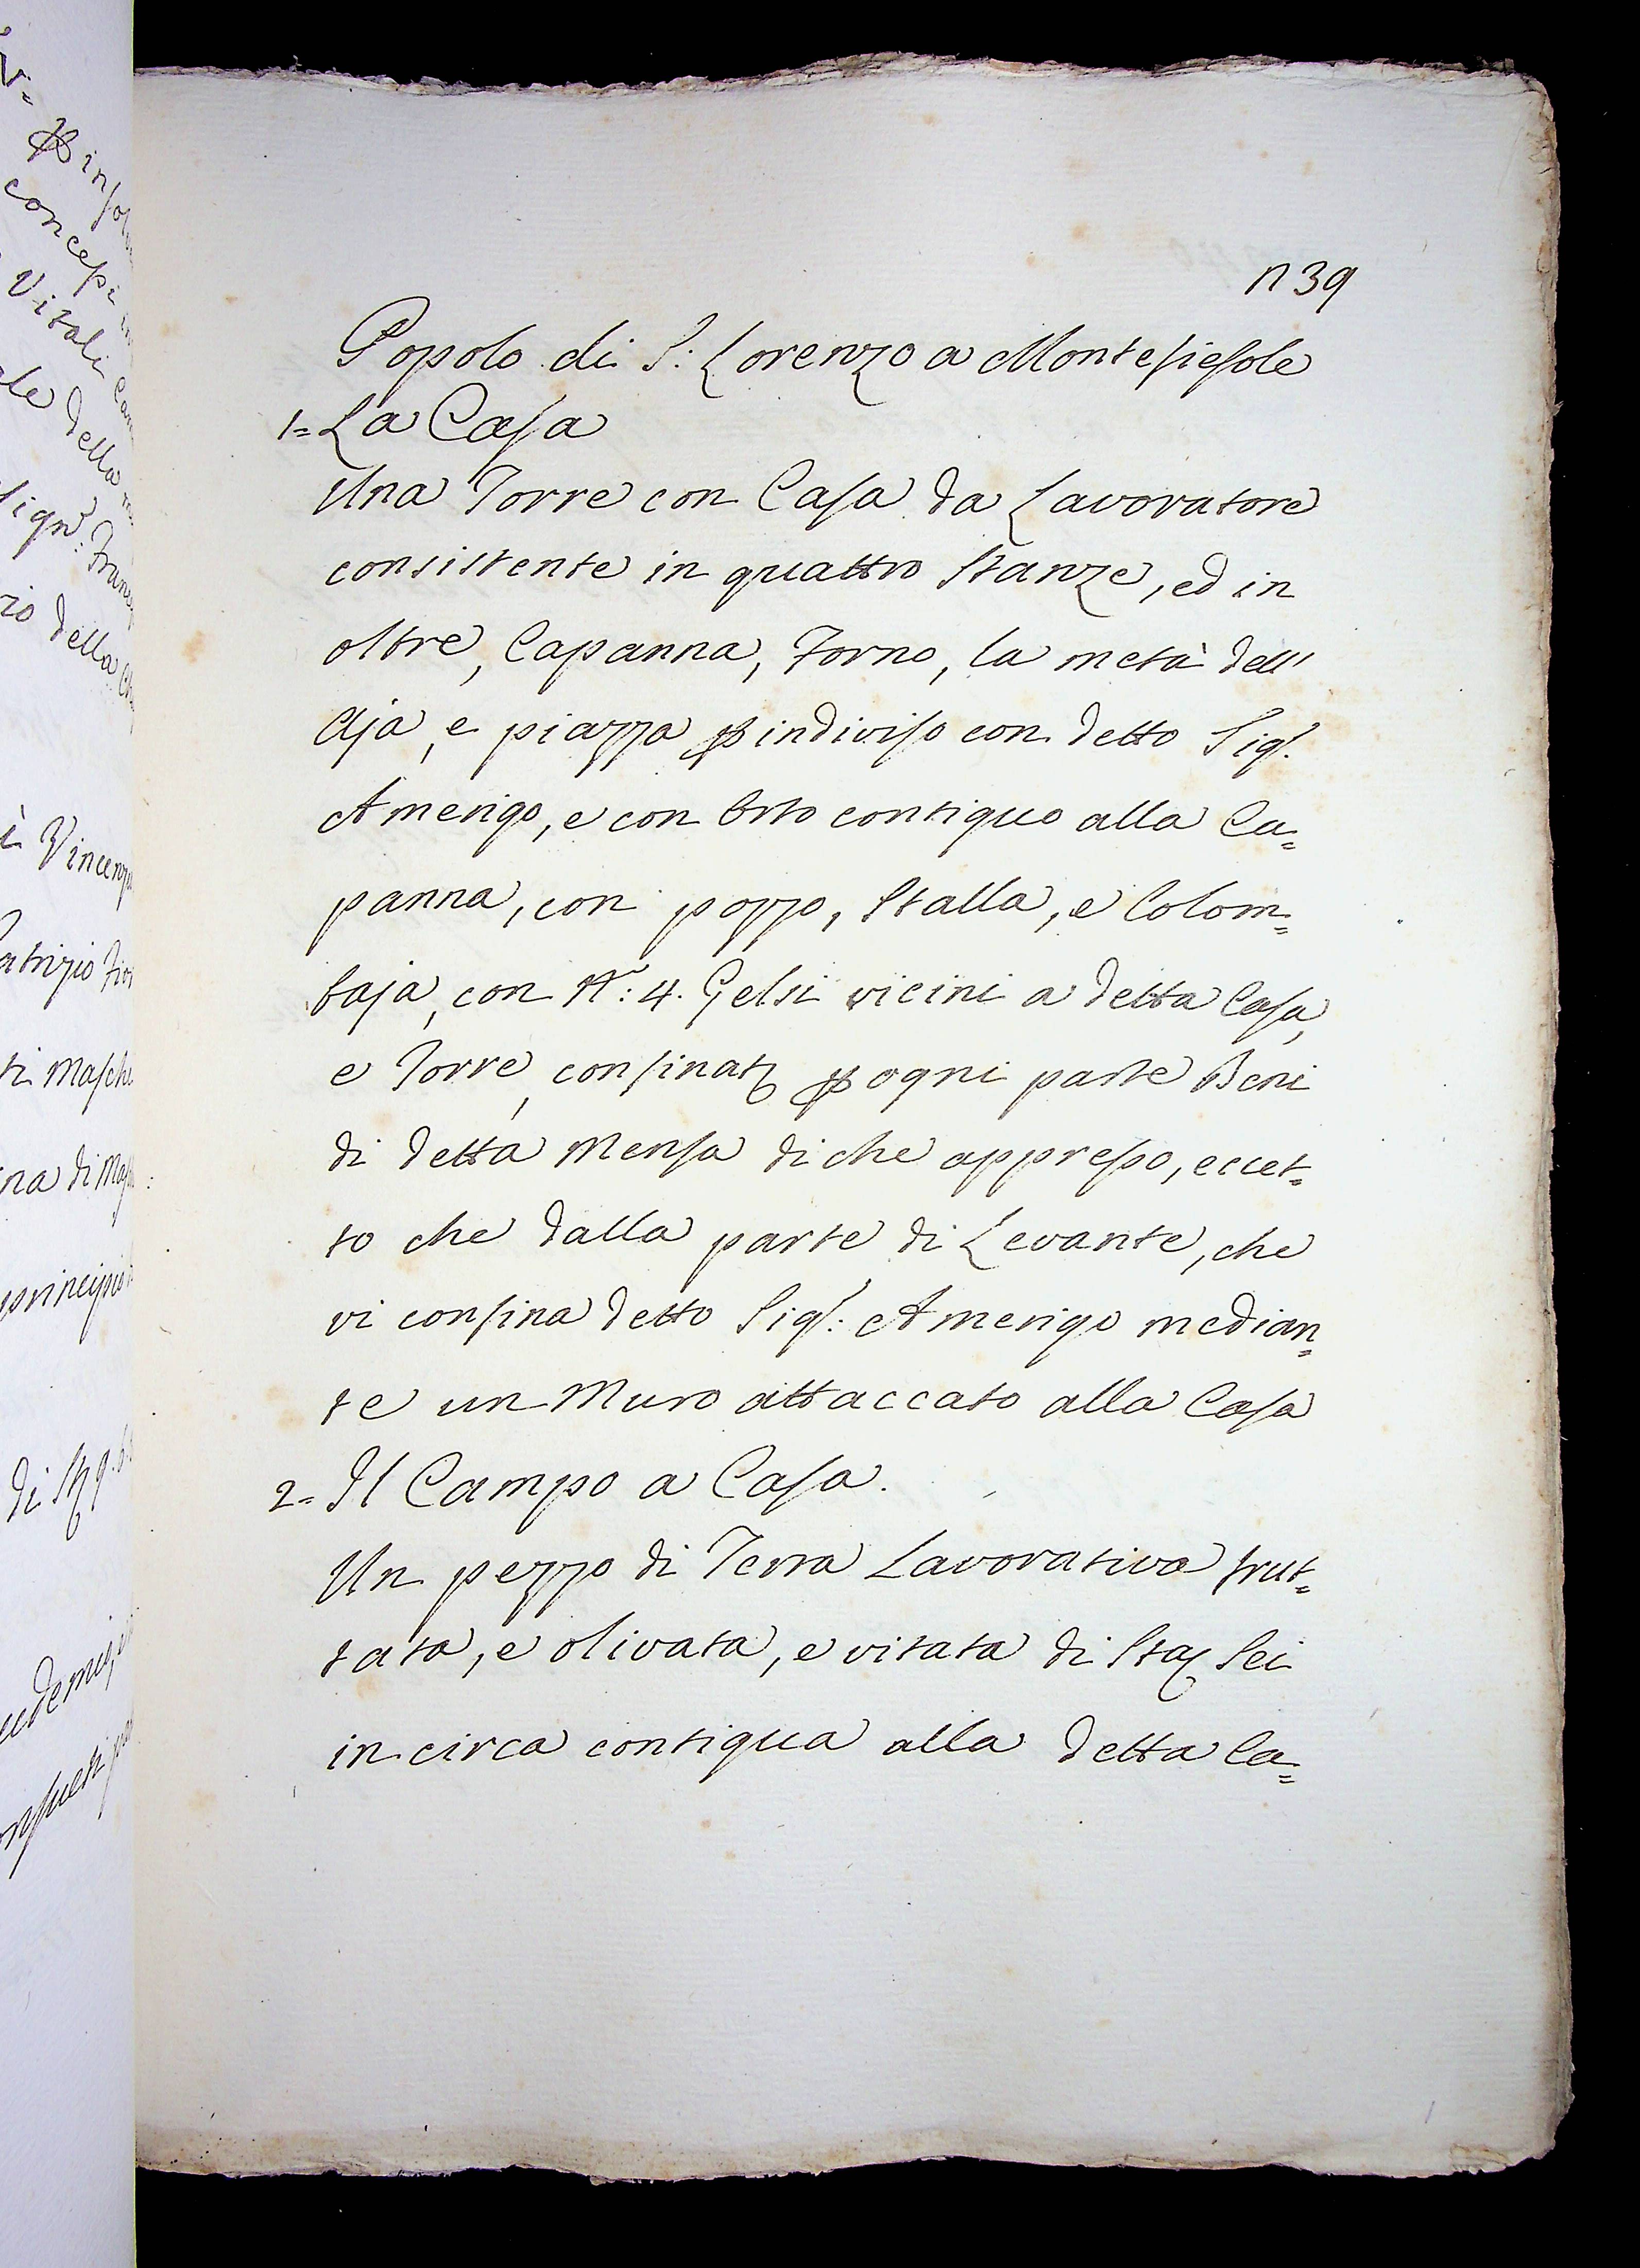 n 39
Popolo di S: Lorenzo a Montefiesole
1= La Casa
Una Torre con Casa da Lavoratore
consistente in quattro Stanze, ed in
oltre, Capanna, Forno, la metà dell'
Aja, e piazza ꝑ indiviso con detto Sigr.
Amerigo, e con Orto contiguo alla Ca=
panna, con pozzo, Stalla, e Colom=
baja, con N.: 4. Gelsi vicini a detta Casa,
e Torre, confinata ꝑ ogni parte Beni
di detta Mensa di che appresso, eccet=
to che dalla parte di Levante, che
vi confina detto Sigr: Amerigo median=
te un Muro attaccato alla Casa
2= Il Campo a Casa.
Un pezzo di Terra Lavorativa frut=
tata, e olivata, e vitata di Sta Sei
in circa contigua alla detta Ca=
concepi
Vitali
le della
Sign.
io della
Vincenzo
atrizio
ti Masch
na di
principio
di